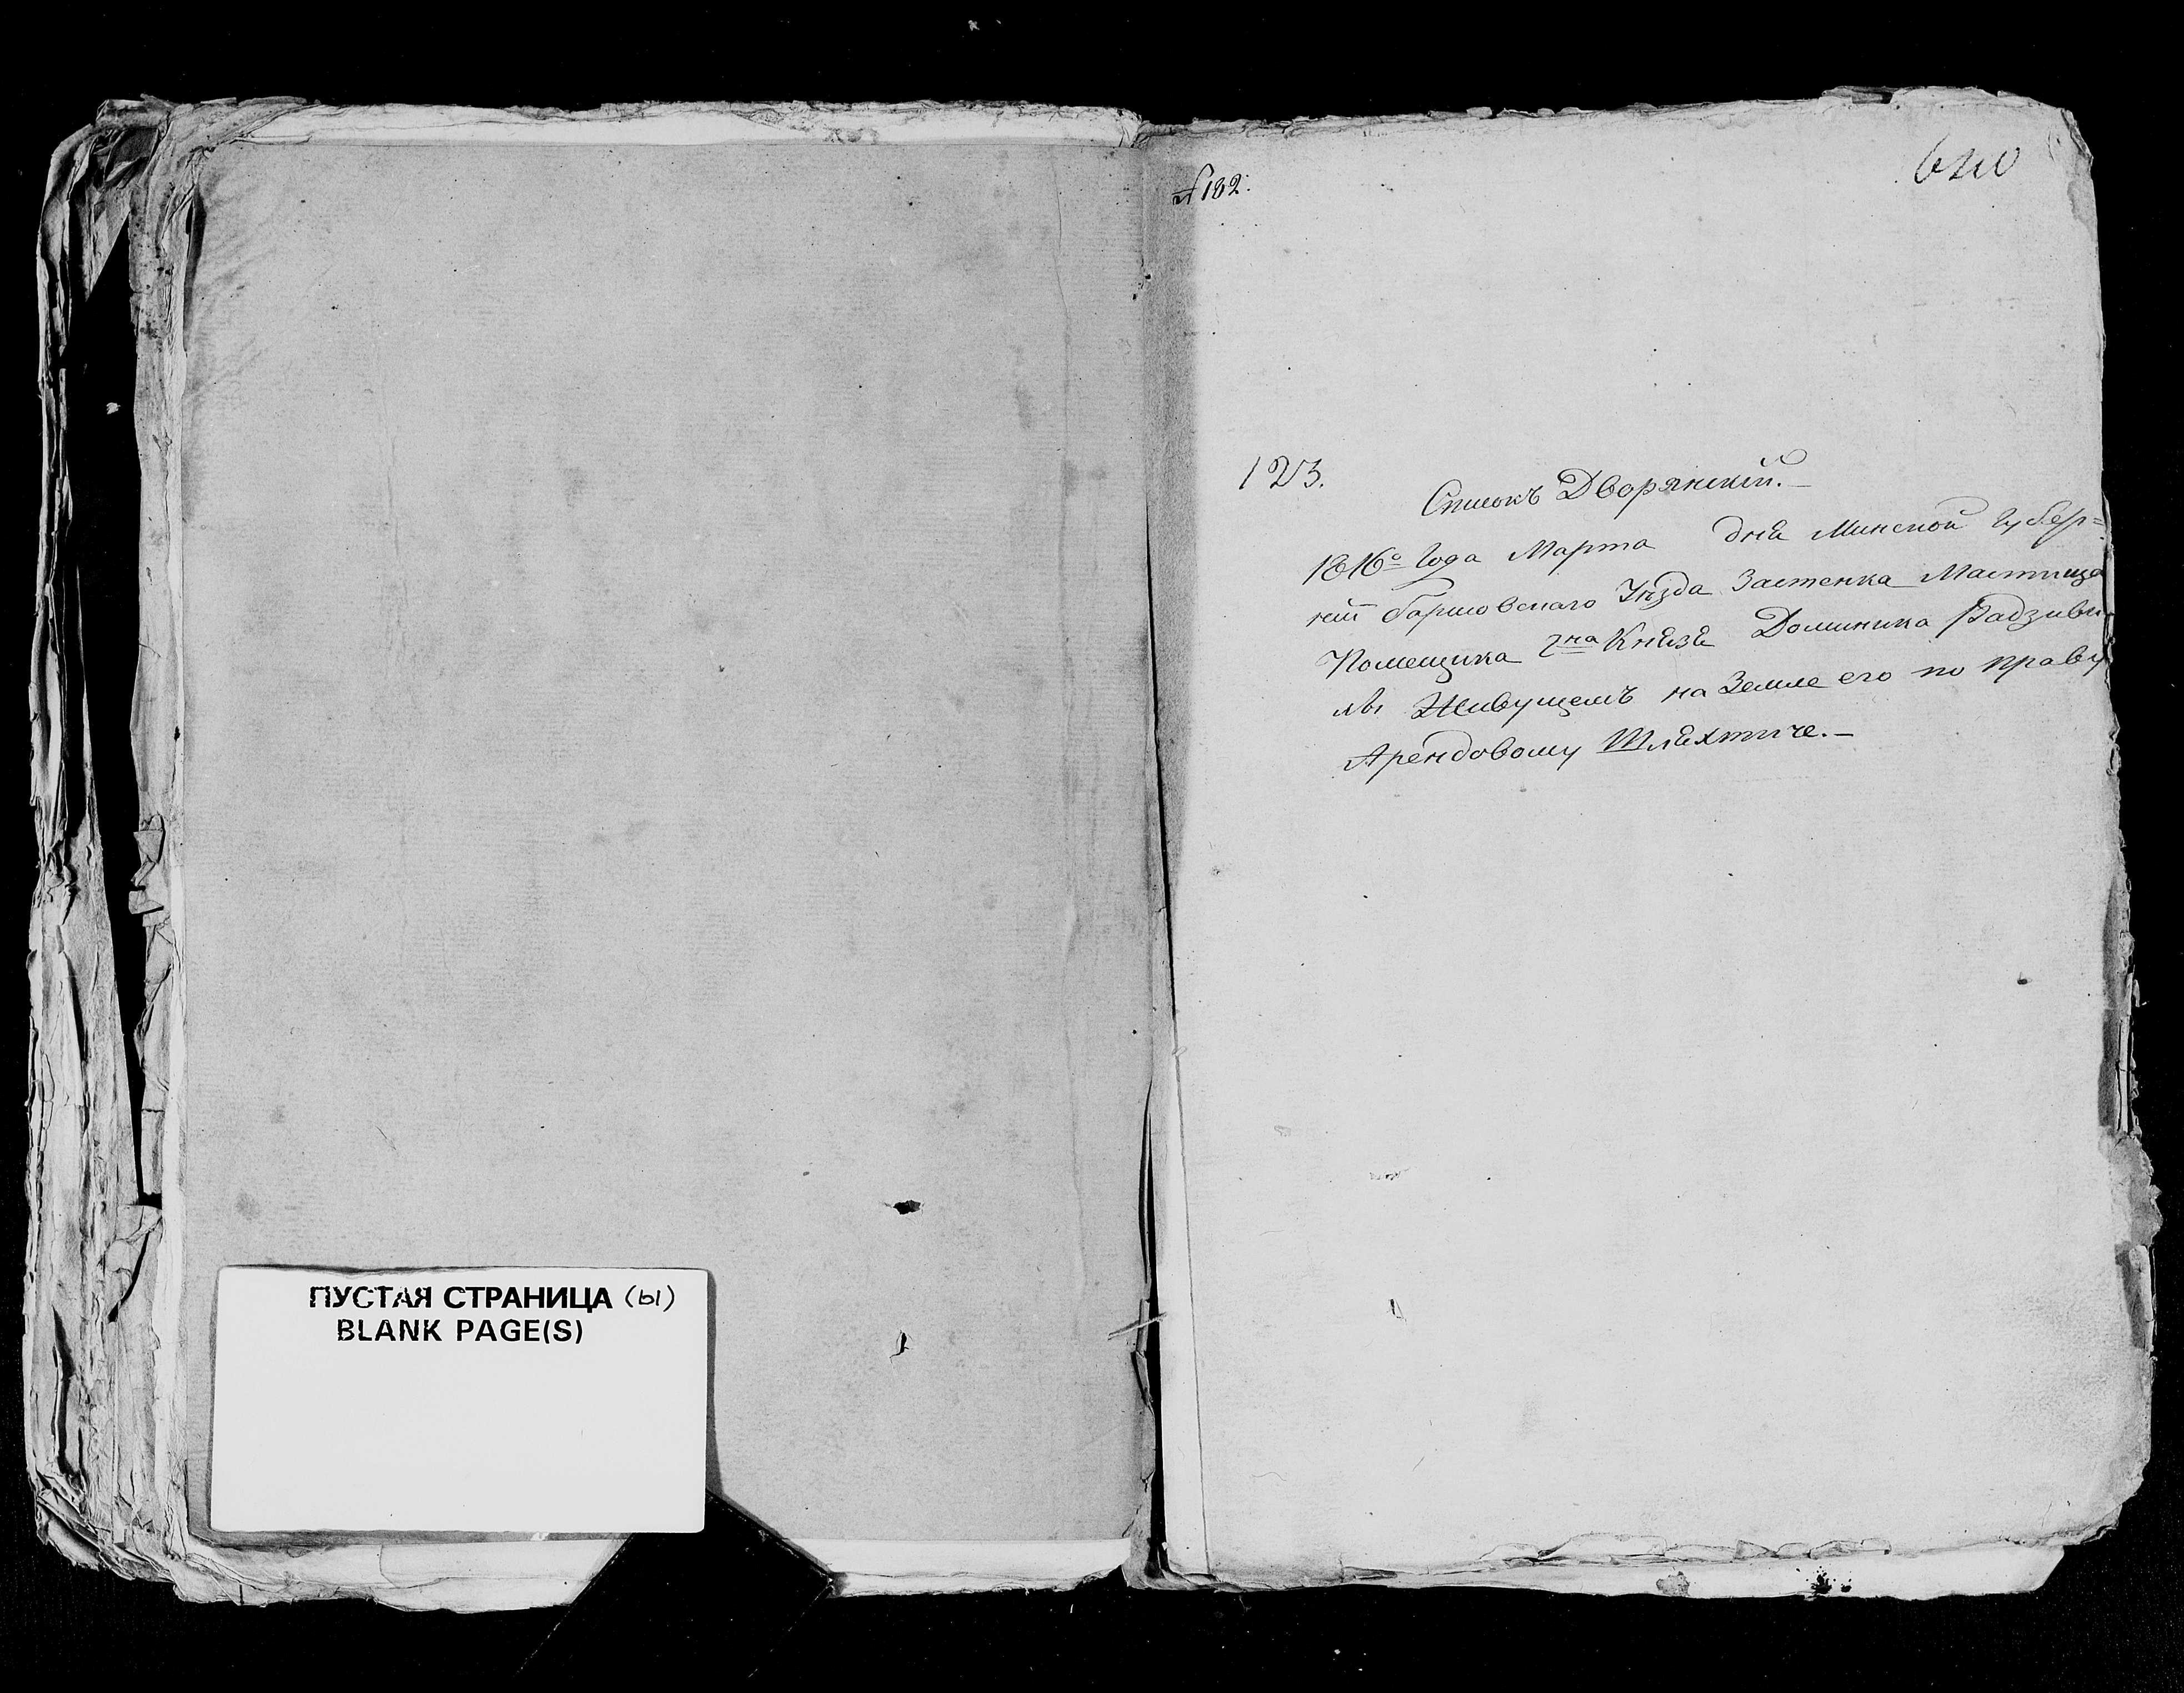 ПУСТАЯ СТРАНИЦА (ы)
BLANK PAGE(S)
№ 182.
123.
Списокъ Дворянскій.
1816о года Марта дня Минской Губер=
ніи Борисовскаго Уѣзда Застенка Мастища
Помещика гна Князя Доминика Радзиви
лы Живущемъ на Земле его по праву
Арендовому Шляхтиче.